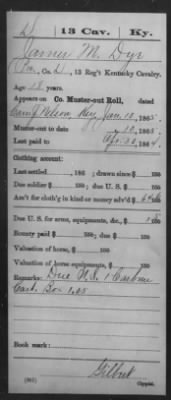 D | 13 Cav. | Ky.
James M. Dyr
Co. D, 13 Reg't Kentucky Cavalry.
Age 18 years.
Appears on Co. Muster-out Roll, dated
Camp Nelson, Ky, Jan. 10, 1865.
Muster-out to date 10, 1865.
Last paid to Apr. 30, 1864.
Clothing account:
Last settled , 186 ; drawn since $ 100
Due soldier $ 100; due U. S. $ 100
Am't for cloth'g in kind or money adv'd $
Due U. S. for arms, equipments, &c., $
Bounty paid $ 100; due $ 100
Valuation of horse, $ 100
Valuation of horse equipments, $ 100
Remarks: Due U.S. 1 Carbine
Cart. Box 1.05
Book mark:
Gilbert
Copyist.